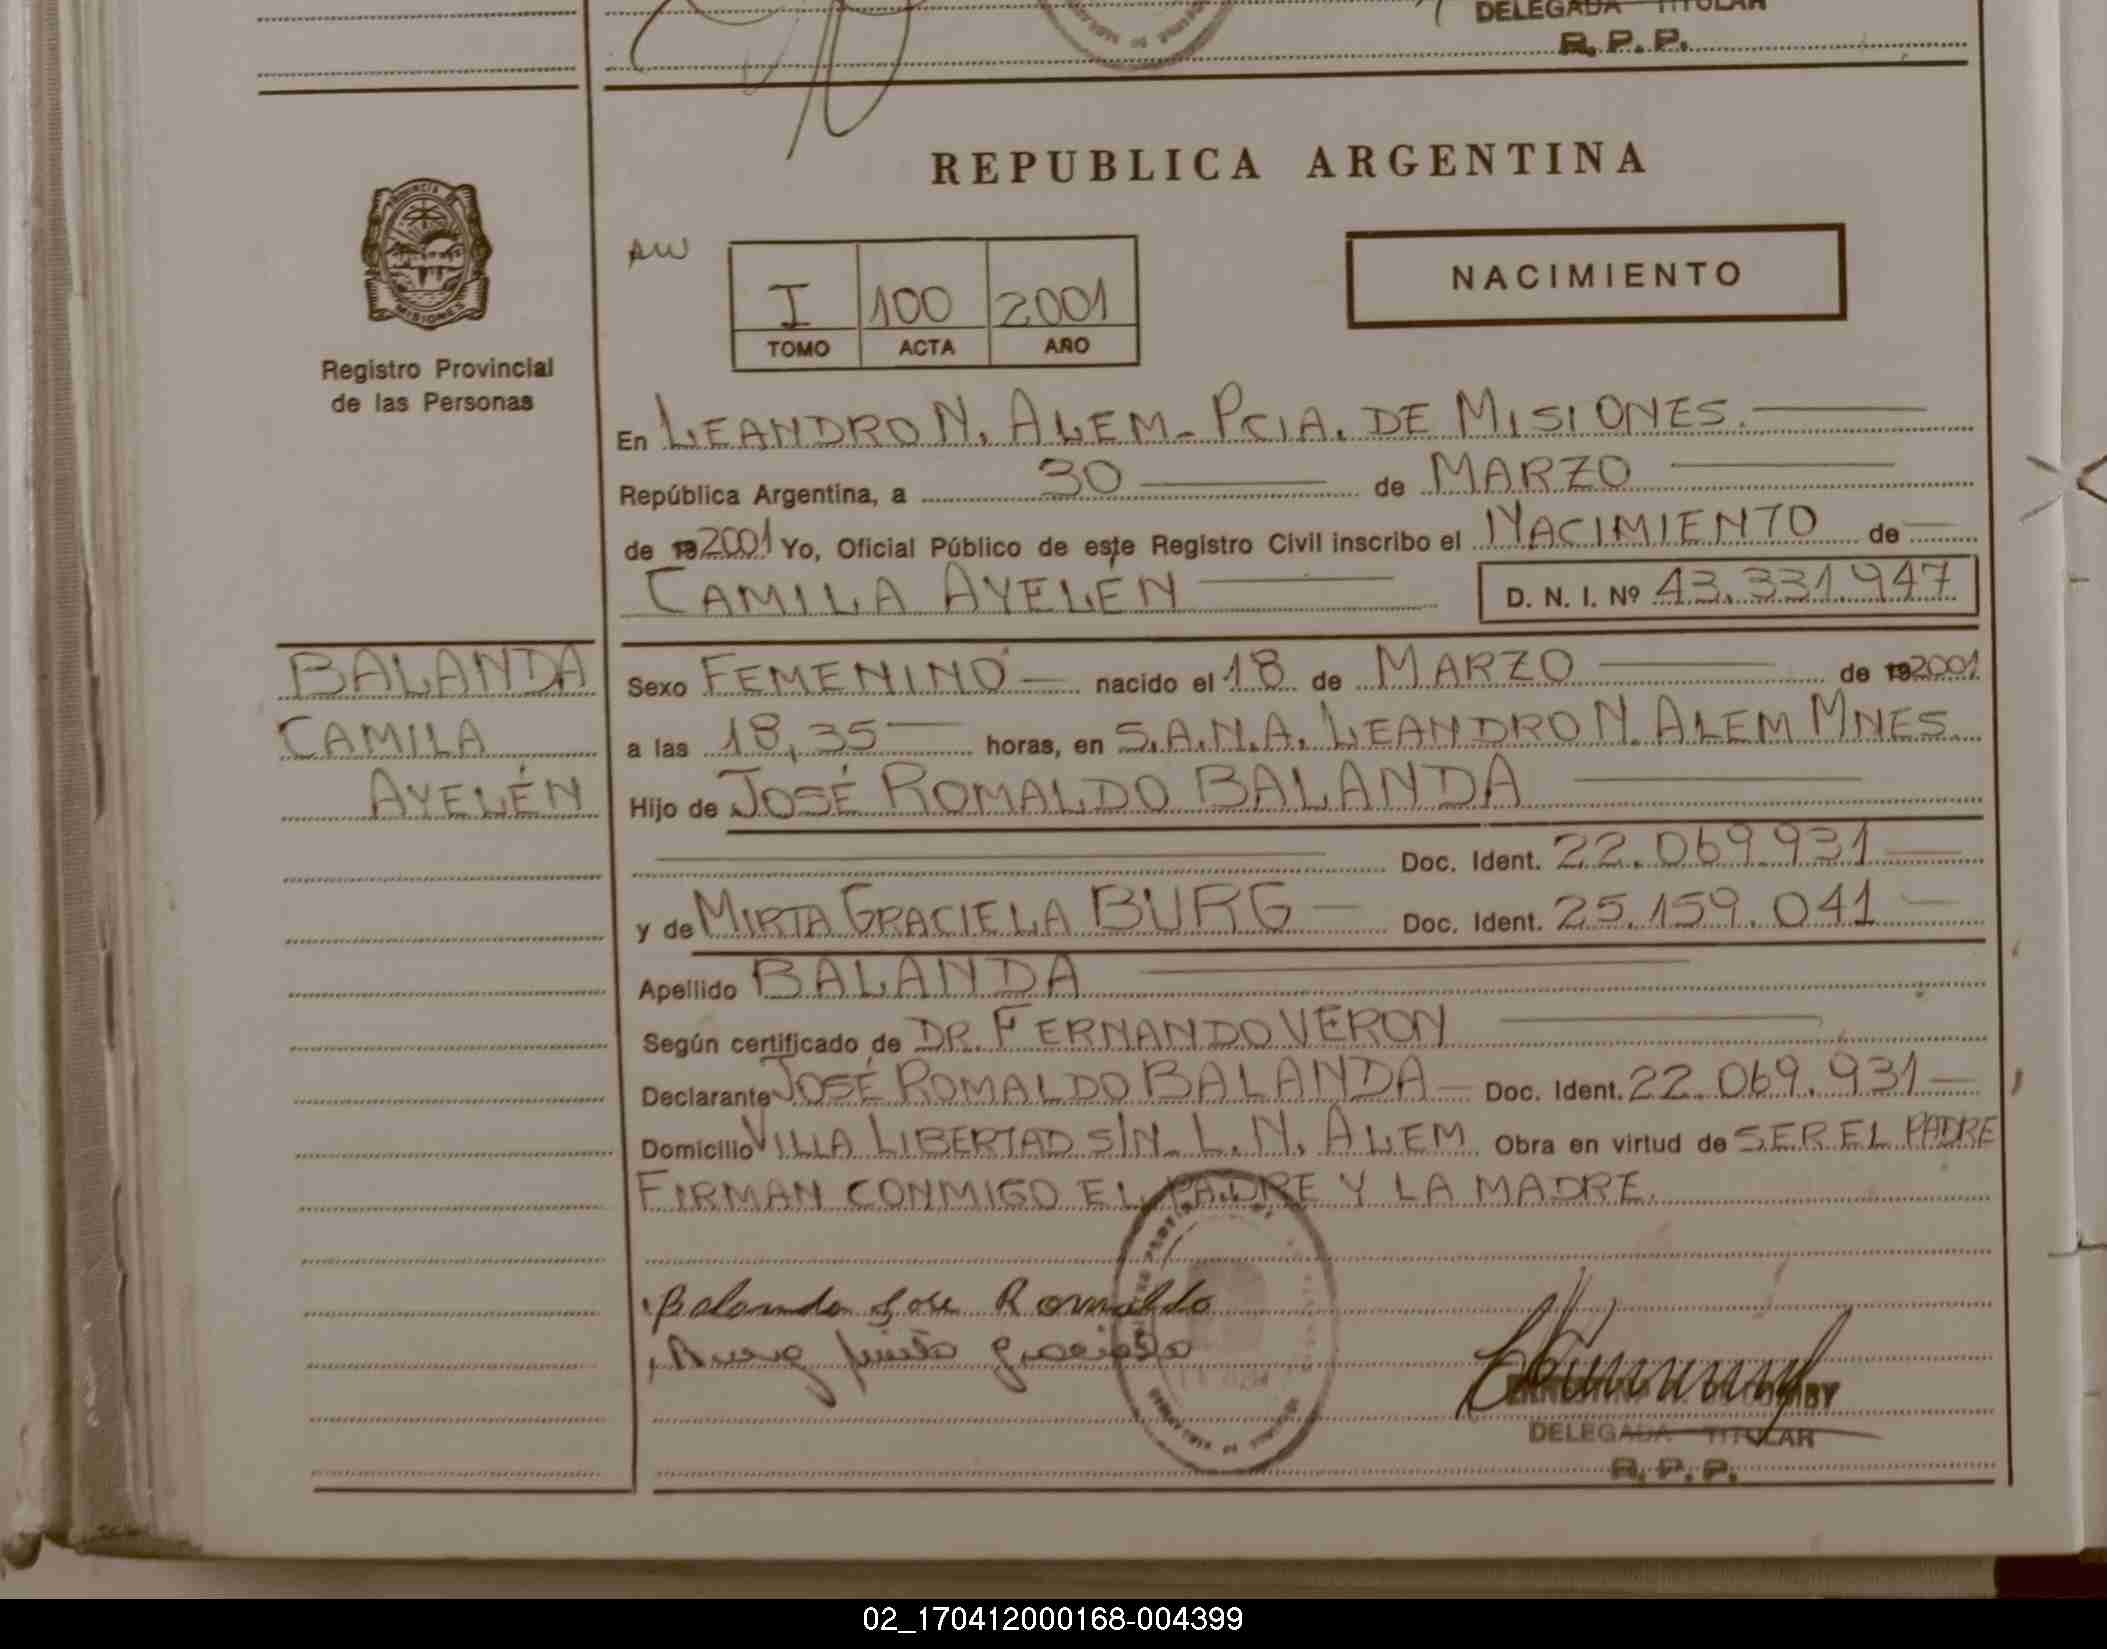 DELEGADA TITULAR
R. P. P.
PROVINCIA DE
MISIONES
Registro Provincial
de las Personas
REPUBLICA ARGENTINA
AW
I 100 2001
TOMO ACTA AÑO
NACIMIENTO
En LEANDRO N. ALEM - PCIA. DE MISIONES.
República Argentina, a 30 de MARZO
de 19 2001 Yo, Oficial Público de este Registro Civil inscribo el NACIMIENTO de
CAMILA AYELÉN D. N. I. Nº 43.331.947
BALANDA
CAMILA
AYELÉN
Sexo FEMENINO nacido el 18 de MARZO de 19 2001
a las 18,35 horas, en S.A.N.A. LEANDRO N. ALEM MNES.
Hijo de JOSÉ ROMALDO BALANDA
Doc. Ident. 22.069.931
y de MIRTA GRACIELA BURG Doc. Ident. 25.159.041
Apellido BALANDA
Según certificado de DR. FERNANDO VERON
Declarante JOSÉ ROMALDO BALANDA Doc. Ident. 22.069.931
Domicilio VILLA LIBERTAD S/N. L. N. ALEM Obra en virtud de SER EL PADRE
FIRMAN CONMIGO EL PADRE Y LA MADRE.
Balanda Jose Romaldo
Burg Mirta Graciela
DELEGADA TITULAR
R. P. P.
02_170412000168-004399